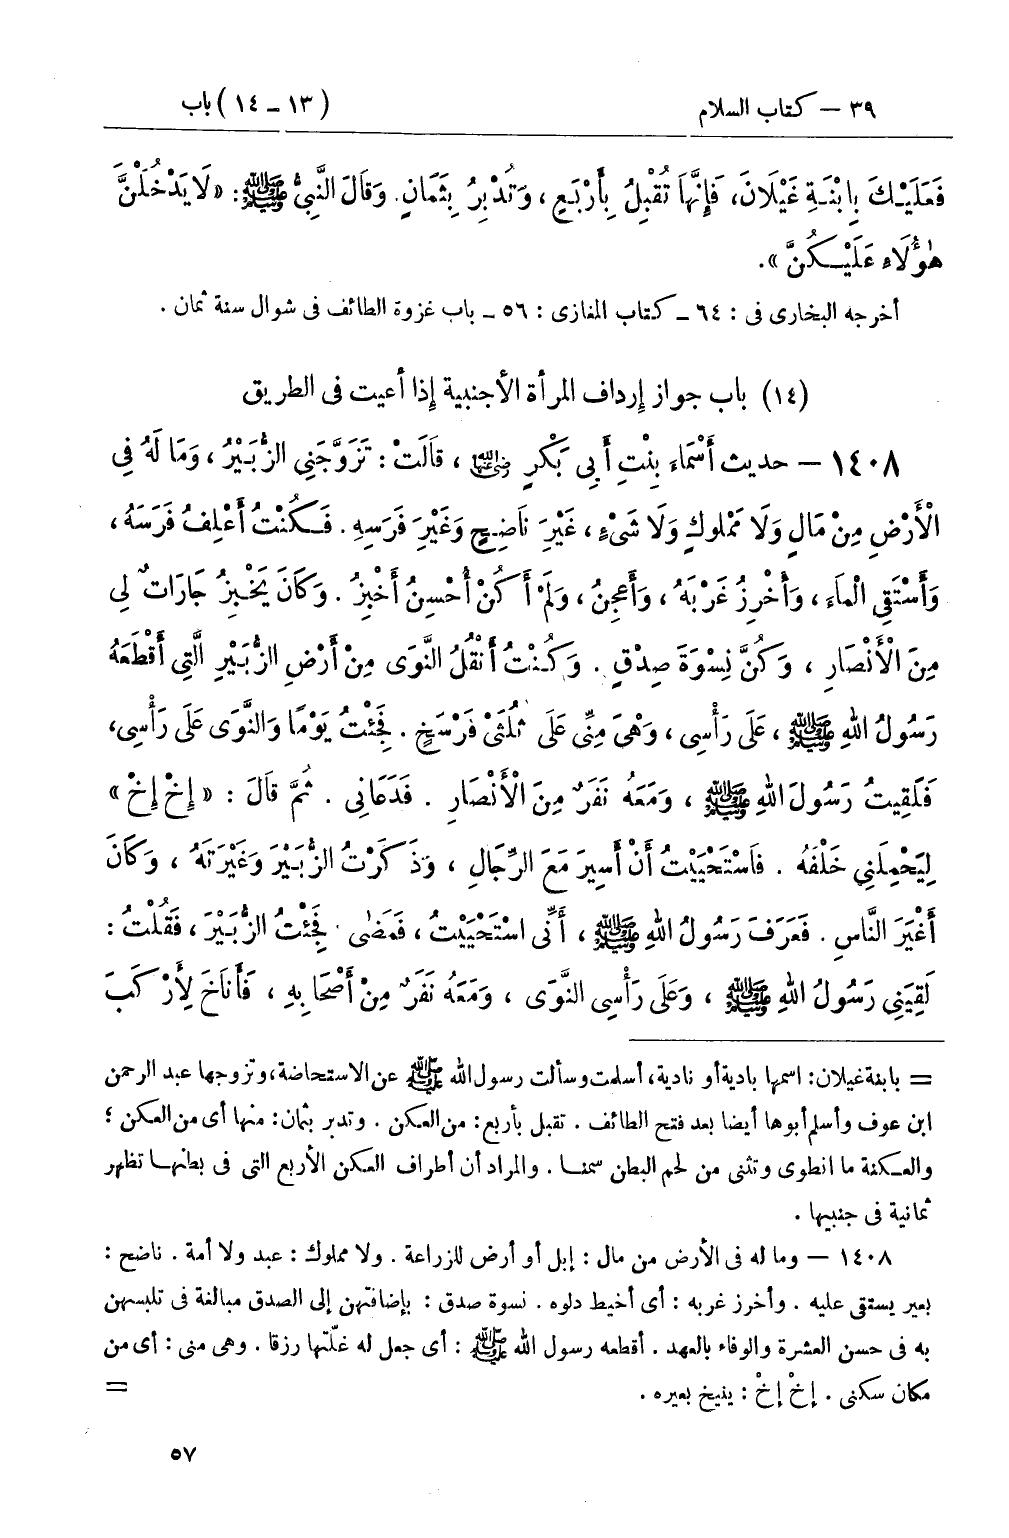 ٣٩ — كتاب السلام (١٣ – ١٤) باب
فَعَلَيْكَ بِابْنَةِ غَيْلَانَ، فَإِنَّهَا تُقْبِلُ بِأَرْبَعٍ ، وَتُدْبِرُ بِثَمَانٍ. وَقَالَ النَّبِىُّ ﷺ: «لَا يَدْخُلَنَّ
هٰؤُلَاءِ عَلَيْكُنَّ».
أخرجه البخارى فى : ٦٤ – كتاب المغازى : ٥٦ – باب غزوة الطائف فى شوال سنة ثمان .
(١٤) باب جواز إرداف المرأة الأجنبية إذا أعيت فى الطريق
١٤٠٨ – حديث أَسْمَاءَ بِنْتِ أَبِى بَكْرٍ رضى الله عنها ، قَالَتْ : تَزَوَّجَنِى الزُّبَيْرُ ، وَمَا لَهُ فِى
الْأَرْضِ مِنْ مَالٍ وَلَا مَمْلوكٍ وَلَا شَىْءٍ ، غَيْرَ نَاضِحٍ وَغَيْرَ فَرَسِهِ . فَكُنْتُ أَعْلِفُ فَرَسَهُ ،
وَأَسْتَقِى الْمَاءَ ، وَأَخْرِزُ غَرْبَهُ ، وَأَعْجِنُ ، وَلَمْ أَكُنْ أُحْسِنُ أَخْبِزُ . وَكَانَ يَخْبِزُ جَارَاتٌ لِى
مِنَ الْأَنْصَارِ ، وَكُنَّ نِسْوَةَ صِدْقٍ . وَكُنْتُ أَنْقُلُ النَّوَى مِنْ أَرْضِ الزُّبَيْرِ الَّتِى أَقْطَعَهُ
رَسُولُ اللهِ ﷺ ، عَلَى رَأْسِى ، وَهْىَ مِنِّى عَلَى ثُلُثَىْ فَرْسَخٍ . فَجِئْتُ يَوْمًا وَالنَّوَى عَلَى رَأْسِى،
فَلَقِيتُ رَسُولَ اللهِ ﷺ ، وَمَعَهُ نَفَرٌ مِنَ الْأَنْصَارِ . فَدَعَانِى . ثُمَّ قَالَ : «إِخْ إِخْ»
لِيَحْمِلَنِى خَلْفَهُ . فَاسْتَحْيَيْتُ أَنْ أَسِيرَ مَعَ الرِّجَالِ ، وَذَكَرْتُ الزُّبَيْرَ وَغَيْرَتَهُ ، وَكَانَ
أَغْيَرَ النَّاسِ . فَعَرَفَ رَسُولُ اللهِ ﷺ ، أَنِّى اسْتَحْيَيْتُ ، فَمَضٰى . فَجِئْتُ الزُّبَيْرَ ، فَقُلْتُ :
لَقِيَنِى رَسُولُ اللهِ ﷺ ، وَعَلَى رَأْسِى النَّوَى ، وَمَعَهُ نَفَرٌ مِنْ أَصْحَابِهِ ، فَأَنَاخَ لِأَرْكَبَ
= بابنة غيلان: اسمها بادية أو نادية، أسلمت وسألت رسول الله ﷺ عن الاستحاضة، وتزوجها عبد الرحمن
ابن عوف وأسلم أبوها أيضا بعد فتح الطائف . تقبل بأربع: من العكن . وتدبر بثمان: منها أى من العكن ؛
والعكنة ما انطوى وتثنى من لحم البطن سمنا . والمراد أن أطراف العكن الأربع التى فى بطنها تظهر
ثمانية فى جنبيها .
١٤٠٨ – وما له فى الأرض من مال : إبل أو أرض للزراعة . ولا مملوك : عبد ولا أمة . ناضح :
بعير يستقى عليه . وأخرز غربه : أى أخيط دلوه . نسوة صدق : بإضافتهن إلى الصدق مبالغة فى تلبسهن
به فى حسن العشرة والوفاء بالعهد . أقطعه رسول الله ﷺ : أى جعل له غلّتها رزقا . وهى منى : أى من
مكان سكنى . إخْ إخْ : ينيخ بعيره . =
٥٧